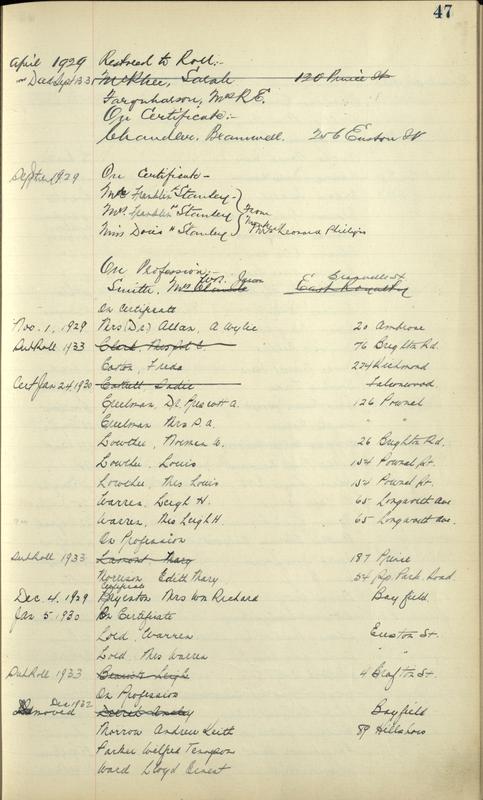 47
April 1929 Restored to Roll:-
Died Sept 1933 McPhee, Sarah 120 Prince St
Farquharson, Mrs R.E.
On Certificate:-
Chandler, Bramwell. 206 Euston St
Sept 1929 On Certificate -
Mr Franklin Stanley
Mrs. Franklin Stanley } From
Miss Doris " Stanley Mrs Leonard Phillips
On Profession:- Granville St
Smith, Mrs East Royalty
On Certificate
Nov. 1, 1929 Mrs (Dr.) Allan, A Wylie 20 Ambrose
Out Roll 1933 Clark, 76 Brighton Rd.
Eaton, Freda 274 Richmond
Cert Jan 24, 1930 Sadie Falconwood.
Dr. Prescott A. 126 Pownal
Mrs P.A. " "
Lowther, Norman W. 26 Brighton Rd.
Lowther, Louis 154 Pownal St.
Lowther, Mrs Louis 154 Pownal St.
Warren, Leigh H. 65 Longworth Ave
Warren, Mrs Leigh H. 65 Longworth Ave.
On Profession
Out Roll 1933 Lamont Mary 187 Prince
Morrison Edith Mary 54 Park Road
Certificate
Dec. 4, 1929 Boynton Mrs Wm Richard Bayfield
Jan 5 1930 On Certificate
Lord, Warren Euston St.
Lord, Mrs Warren " "
Out Roll 1933 Grafton St.
On Profession
Removed Dec 1932 Bayfield
Morrow Andrew Keith 89 Hillsboro
Parker Wilfred Tennyson
Ward Lloyd Ernest